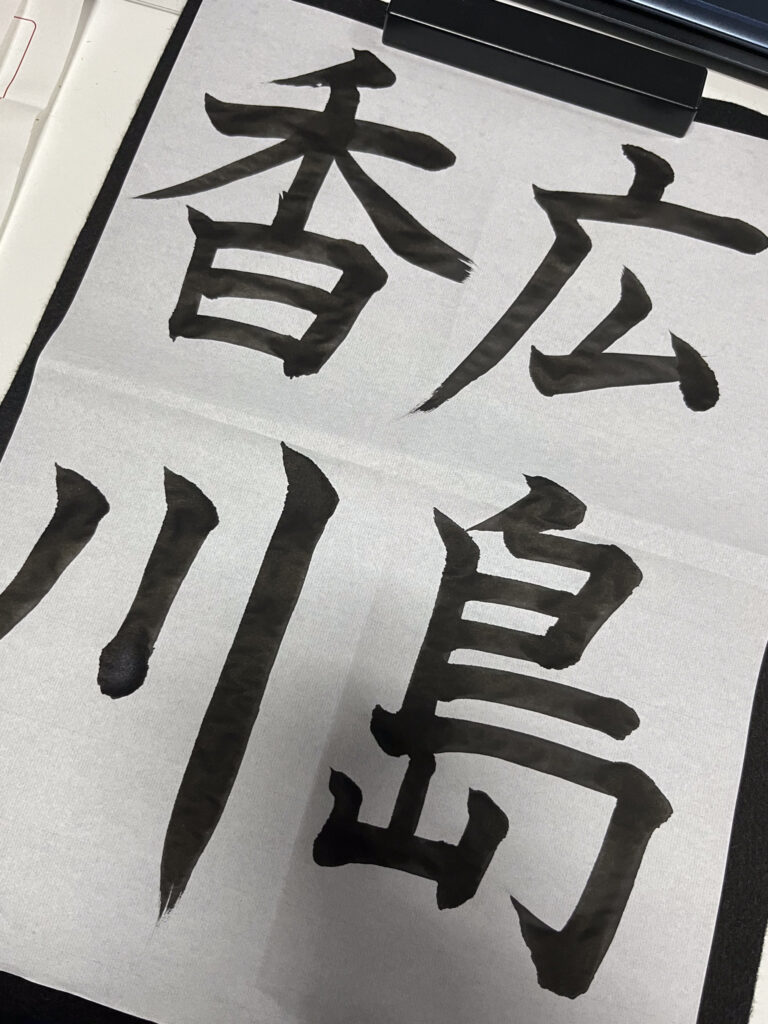 広島
香川